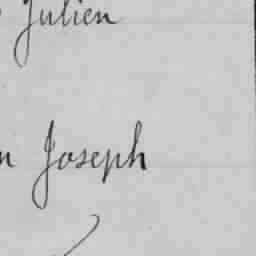 Julien
n Joseph